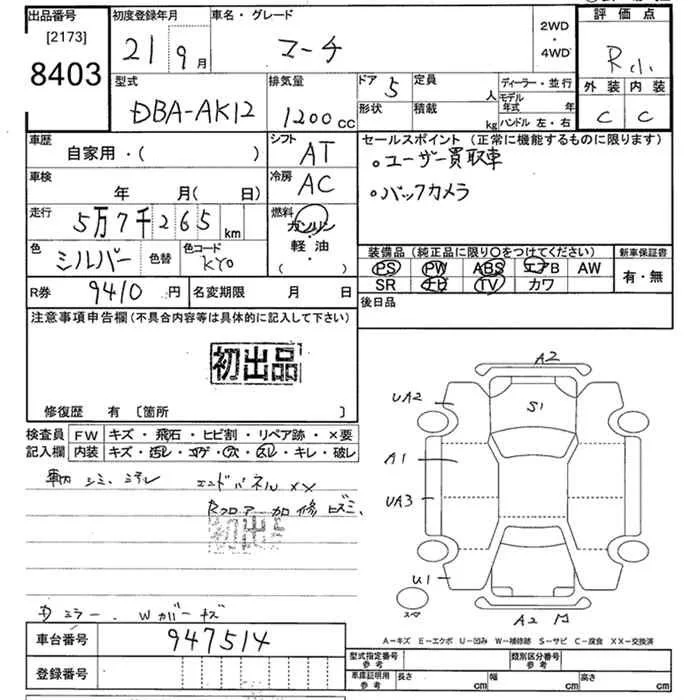 出品番号
[2173]
8403
初度登録年月
21 9月
車名・グレード
マーチ
2WD
・
4WD
評価点
R 小
外装 内装
C C
型式
DBA-AK12
排気量
1200cc
ドア 5
定員 人
形状
積載 kg
ディーラー・並行
モデル年式 年
ハンドル 左・右
車歴
自家用・( )
シフト
AT
車検
年 月( 日)
冷房
AC
走行
5万7千265km
燃料
ガソリン
軽油
( ・ )
色
シルバー
色替
色コード
KY0
R券 9410円
名変期限 月 日
セールスポイント (正常に機能するものに限ります)
○ユーザー買取車
○バックカメラ
装備品 (純正品に限り○をつけてください)
PS PW ABS エアB AW
SR ナビ TV カワ
新車保証書
有・無
後日品
注意事項申告欄(不具合内容等は具体的に記入して下さい)
初出品
修復歴 有 〔箇所 〕
検査員記入欄
FW キズ・飛石・ヒビ割・リペア跡・×要
内装 キズ・汚レ・コゲ・穴・スレ・キレ・破レ
エンドパネル ××
Rフロアー加修
初出品
ミラー、Wカバーキズ
車台番号
947514
登録番号
A2
UA2
S1
A1
UA3
U1
A2
スペア
A-キズ E-エクボ U-凹み W-補修跡 S-サビ C-腐食 ××-交換済
型式指定番号 参考
類別区分番号 参考
車庫証明用 参考
長さ cm
幅 cm
高さ cm